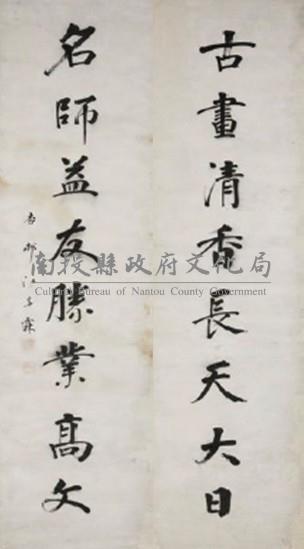 古畫清香長天大日
名師益友勝業高文
南投縣政府文化局
Cultural Bureau of Nantou County Government